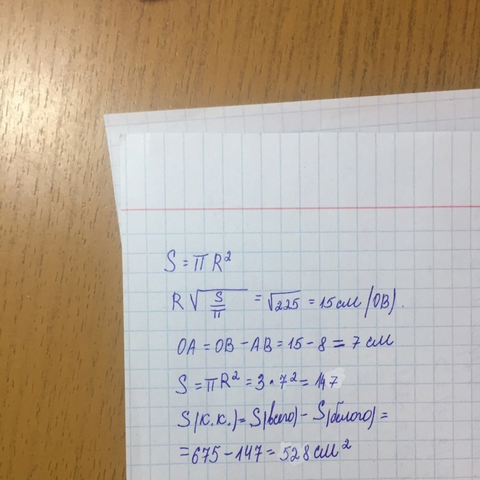 S = πR²
R√(S/π) = √225 = 15 см (OB).
OA = OB - AB = 15 - 8 = 7 см
S = πR² = 3 • 7² = 147
S(к.к.) = S(всего) - S(белого) =
= 675 - 147 = 528 см²